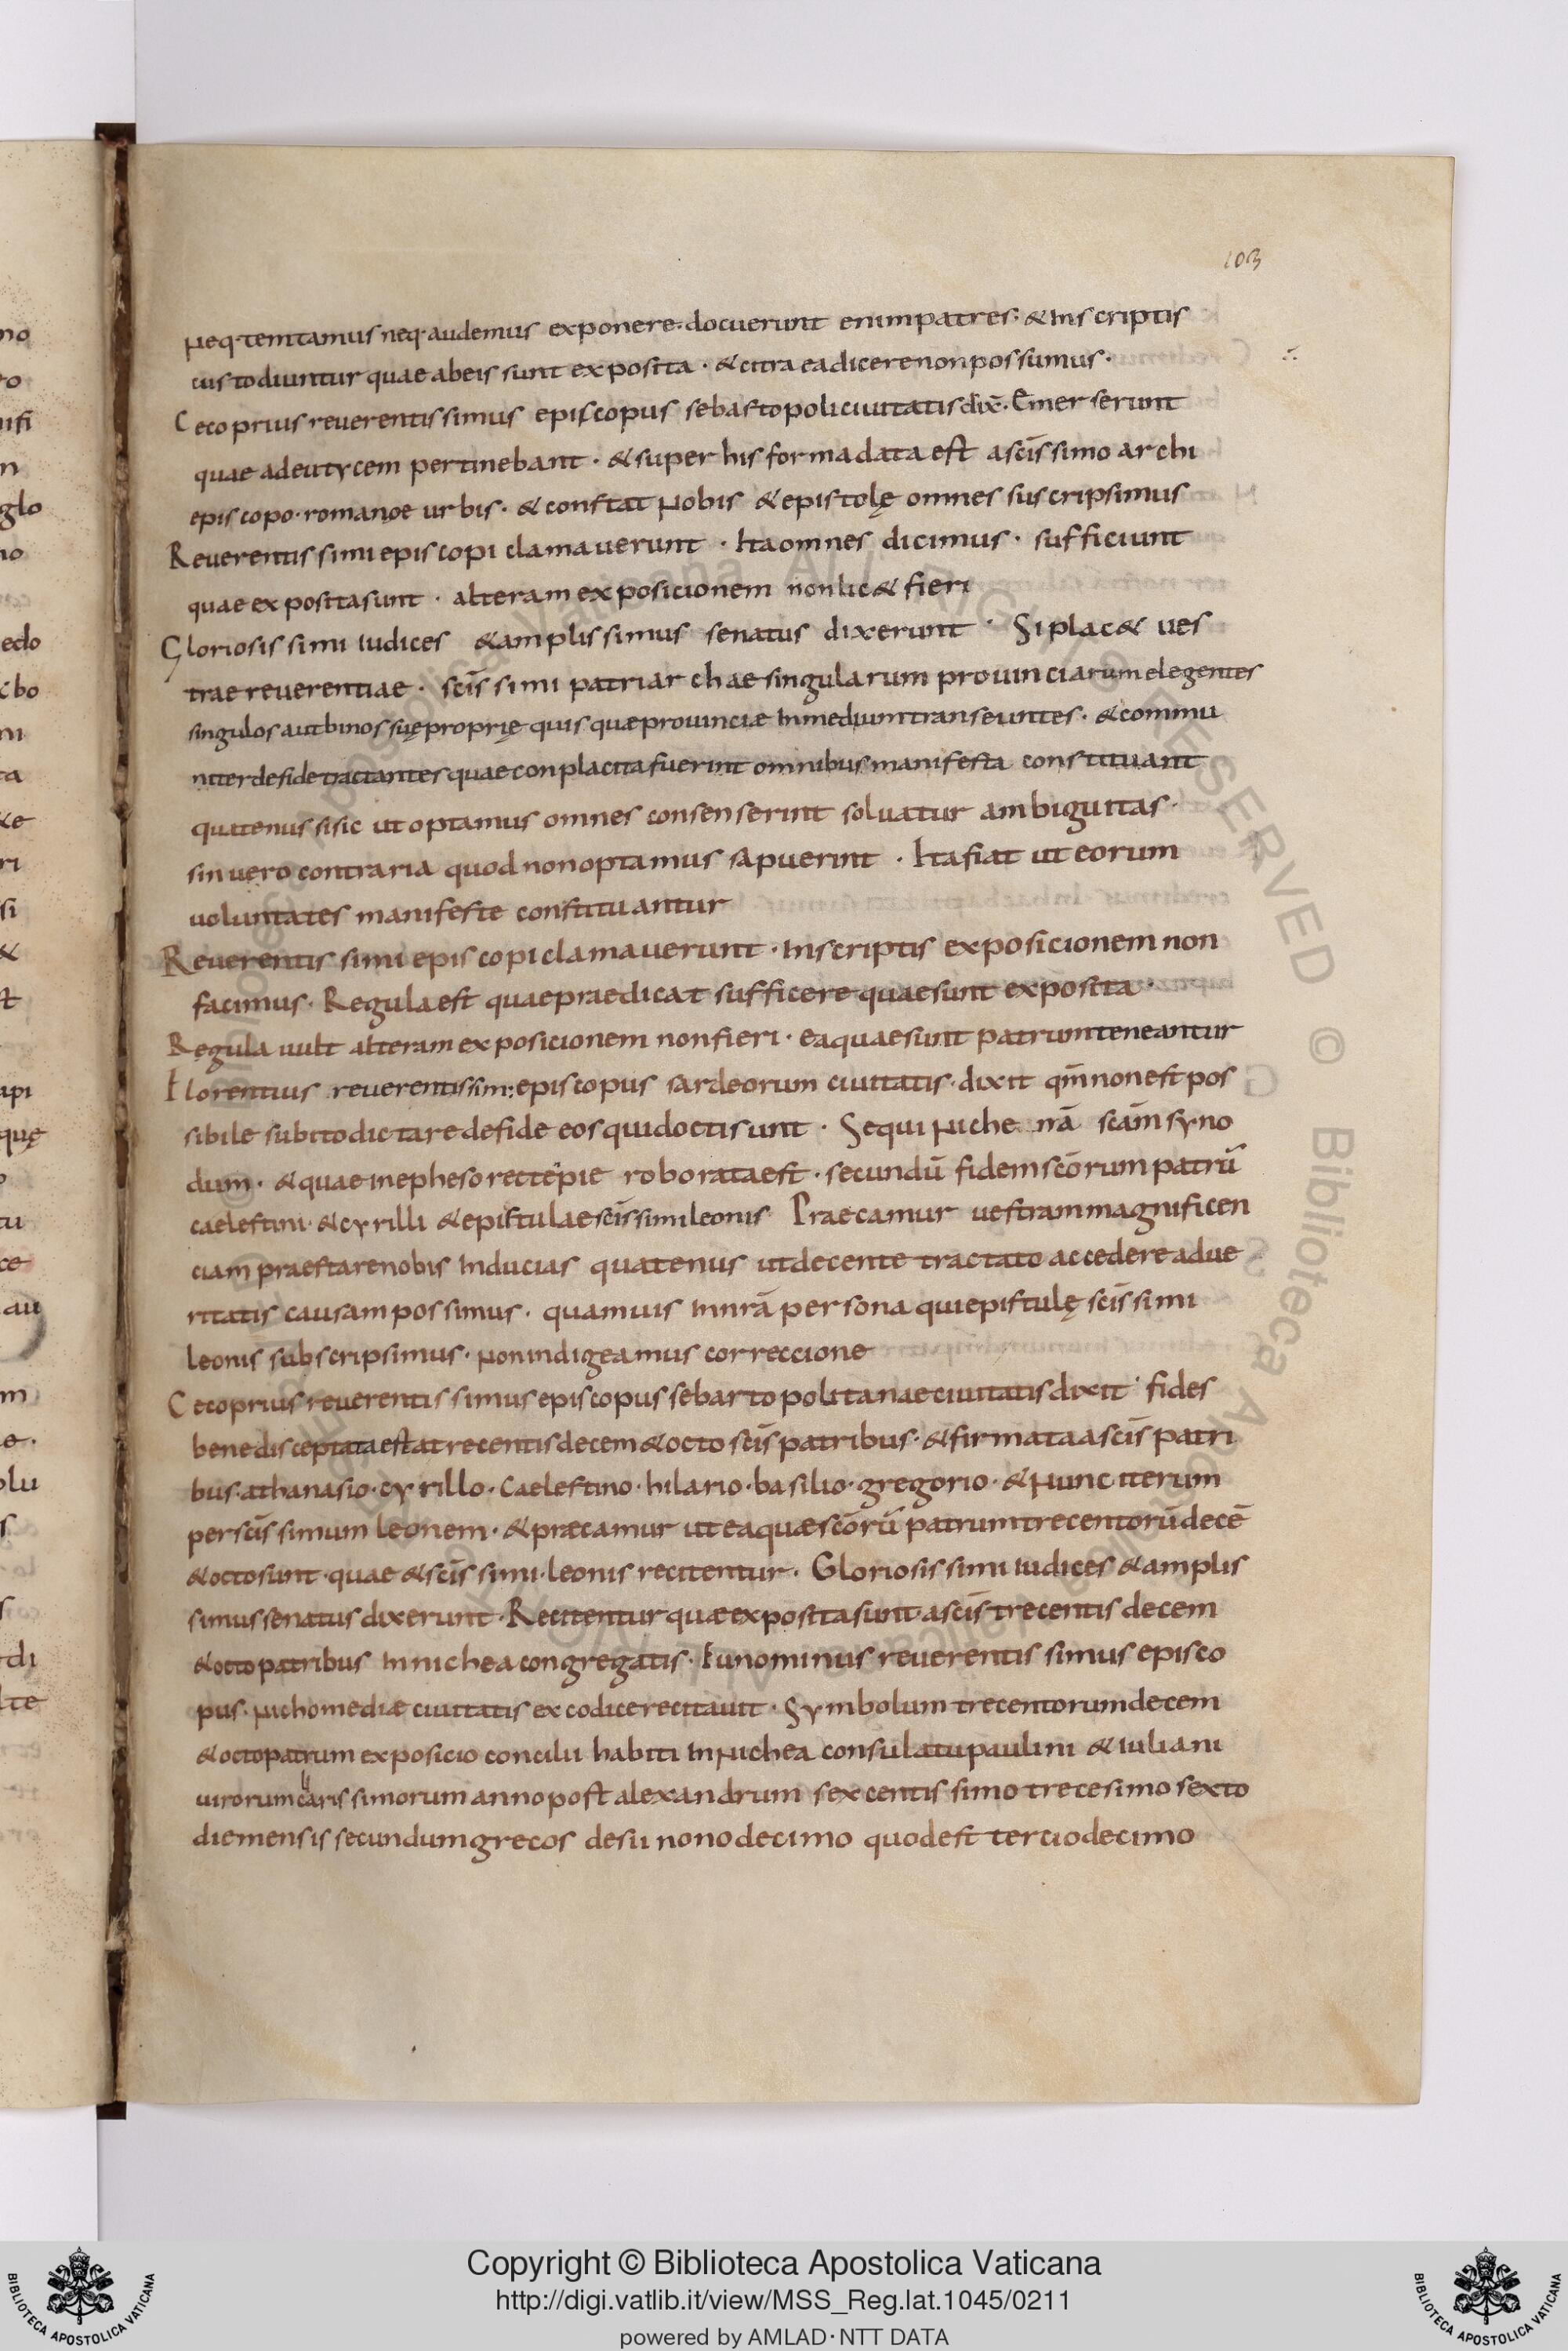 103
Neq; temtamus neq; audemus exponere. docuerunt enim patres. & Inscriptis
custodiuntur quae abeis sunt exposita · & citra ea dicere non possumus ·
Cecoprius reuerentissimus episcopus sebastopoli ciuitatis dix̄. Emerserunt
quae adeutycem pertinebant · & super his forma data est a sc̄issimo archi
episcopo · romanoe urbis · & constat Nobis & epistolę omnes suscripsimus
Reuerentissimi episcopi clamauerunt · Ita omnes dicimus · sufficiunt
quae exposita sunt · alteram exposicionem non lic& fieri
Gloriosissimi iudices & amplissimus senatus dixerunt · Si plac& ues
trae reuerentiae · sc̄issimi patriarchae singularum prouinciarum elegentes
singulos aut binos suę proprię quisquæ prouinciæ In medium transeuntes · & commu
niter de fide tractantes quae conplacita fuerint omnibus manifesta constituant
quatenus si sic ut optamus omnes consenserint soluatur ambiguitas ·
sin uero contraria quod non optamus sapuerint · Ita fiat ut eorum
uoluntates manifeste constituantur
Reuerentissimi episcopi clamauerunt · Inscriptis exposicionem non
facimus · Regula est quae praedicat sufficere quae sunt exposita ·
Regula uult alteram exposicionem non fieri · ea quae sunt patrum teneantur
Florentius reuerentissim; episcopus sardeorum ciuitatis · dixit qm̄ non est pos
sibile subito dictare de fide eos qui docti sunt · Sequi Niche nā scām syno
dum · & quae in epheso recte pie roborata est · secundū fidem scōrum patrū
caelestini · & cyrilli & epistulae sc̄issimi leonis Praecamur uestram magnificen
ciam praestare nobis Inducias quatenus ut decente tractato accedere ad ue
ritatis causam possimus · quamuis In nrā persona qui epistulę sc̄issimi
leonis subscripsimus · Non indigeamus correccione
Cecoprius reuerentissimus episcopus sebartopolitanae ciuitatis dixit · fides
bene disceptata est a trecentis decem & octo sc̄is patribus · & firmata a sc̄is patri
bus · athanasio · cyrillo · Caelestino · hilario · basilio · gregorio · & Nunc iterum
per sc̄issimum leonem · & præcamur ut ea quæ scōrū patrum trecentorū decē
& octo sunt · quae & sc̄issimi · leonis recitentur · Gloriosissimi iudices & amplis
simus senatus dixerunt · Recitentur quæ exposita sunt a sc̄is trecentis decem
& octo patribus In nichea congregatis · Eunominus reuerentissimus episco
pus · Nichomediæ ciuitatis ex codice recitauit · Symbolum trecentorum decem
& octo patrum exposicio concilii habiti In Nichea consulatu paulini & iuliani
uirorum clarissimorum anno post alexandrum sexcentissimo trecesimo sexto
die mensis secundum grecos desii nono decimo quod est tercio decimo
Copyright © Biblioteca Apostolica Vaticana
http://digi.vatlib.it/view/MSS_Reg.lat.1045/0211
powered by AMLAD · NTT DATA